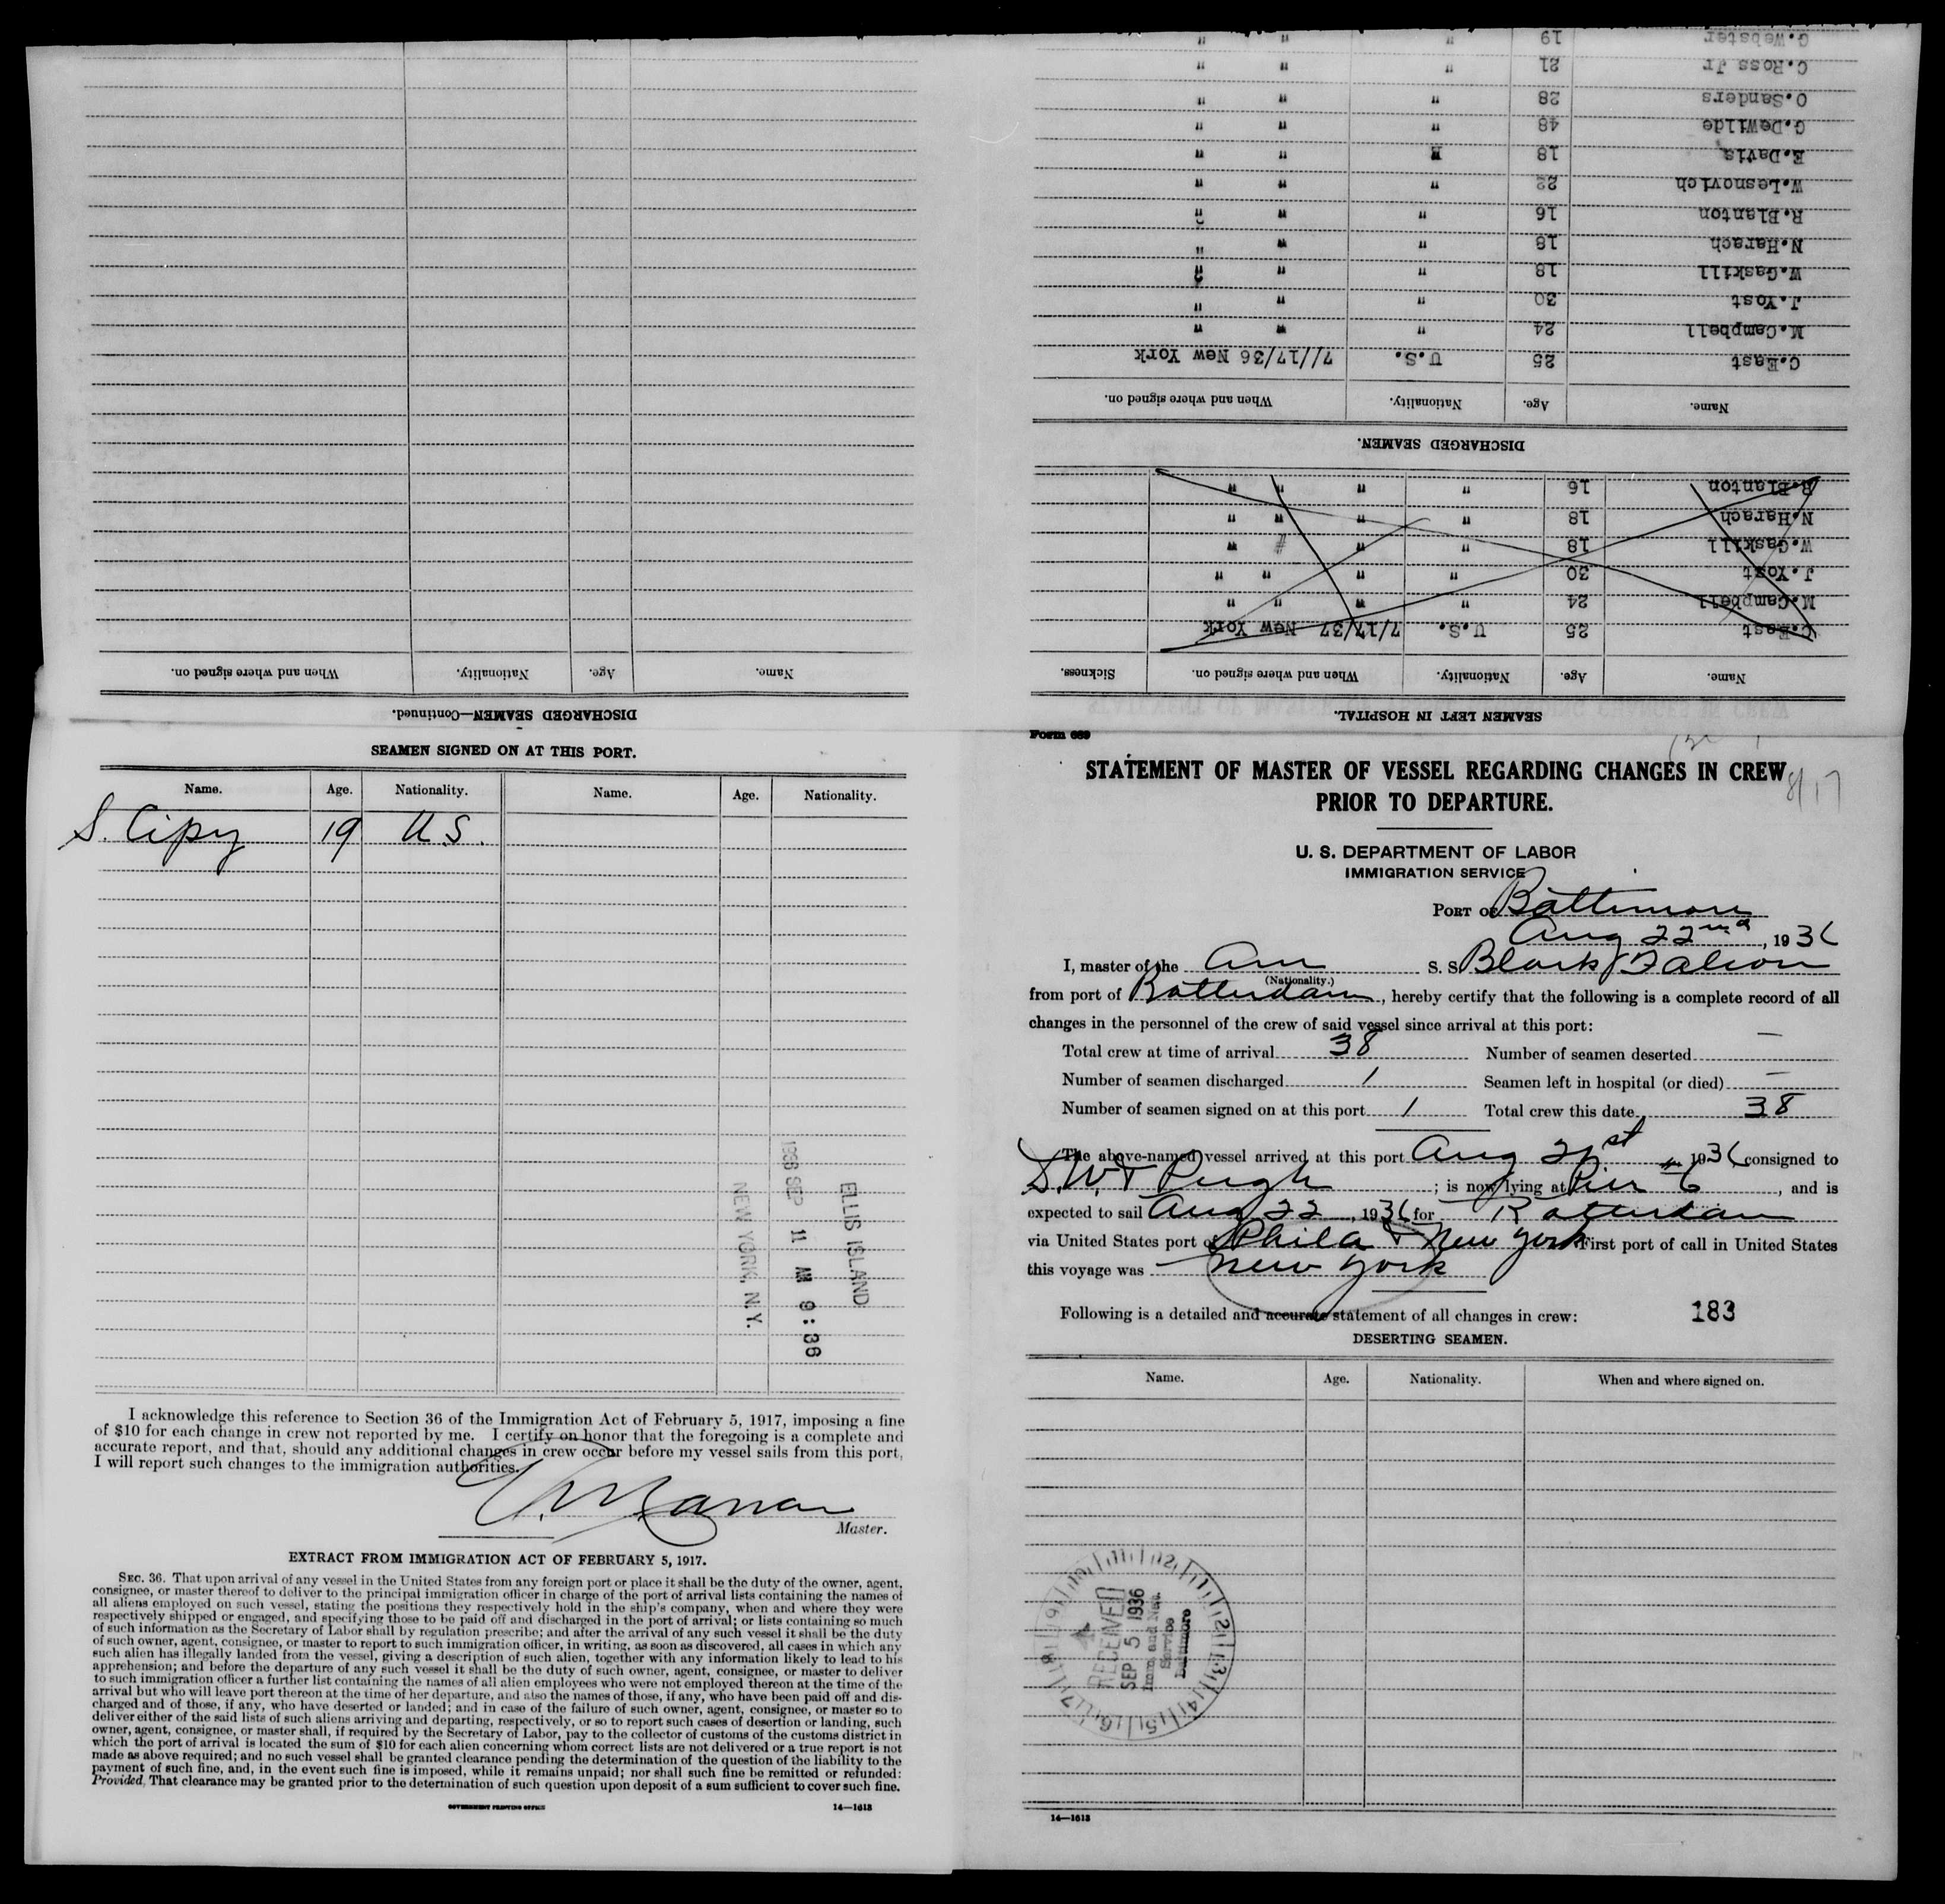 Form 689
STATEMENT OF MASTER OF VESSEL REGARDING CHANGES IN CREW
PRIOR TO DEPARTURE.
8/17
U. S. DEPARTMENT OF LABOR
IMMIGRATION SERVICE
PORT OF Baltimore
Aug 22nd, 1936
I, master of the Am S. S. Black Falcon
(Nationality.)
from port of Rotterdam, hereby certify that the following is a complete record of all
changes in the personnel of the crew of said vessel since arrival at this port:
Total crew at time of arrival 38 Number of seamen deserted —
Number of seamen discharged 1 Seamen left in hospital (or died) —
Number of seamen signed on at this port 1 Total crew this date 38
The above-named vessel arrived at this port Aug 21st 1936 consigned to
Pugh ; is now lying at Pier 6, and is
expected to sail Aug 22, 1936 for Rotterdam
via United States port of Phila & New York First port of call in United States
this voyage was New York
Following is a detailed and accurate statement of all changes in crew: 183
DESERTING SEAMEN.
Name. Age. Nationality. When and where signed on.
RECEIVED
SEP 5 1936
Imm. and Nat.
Service
Baltimore
14—1613
SEAMEN LEFT IN HOSPITAL.
Name. Age. Nationality. When and where signed on. Sickness.
C.East 25 U.S. 7/17/37 New York
M.Campbell 24 " " " "
J.Yost 30 " " " "
W.Gaskill 18 " " # "
N.Harach 18 " " " "
R.Blanton 16 " " " "
DISCHARGED SEAMEN.
Name. Age. Nationality. When and where signed on.
C.East 25 U.S. 7//17/36 New York
M.Campbell 24 " " "
J.Yost 30 " " "
W.Gaskill 18 " " "
N.Harach 18 " " "
R.Blanton 16 " " "
W.Lesnovich 22 " " "
E.Davis 18 " " "
G.DeWilde 48 " " "
O.Sanders 28 " " "
C.Ross Jr 21 " " "
G.Webster 19 " " "
DISCHARGED SEAMEN—Continued.
Name. Age. Nationality. When and where signed on.
SEAMEN SIGNED ON AT THIS PORT.
Name. Age. Nationality. Name. Age. Nationality.
S. Cipy 19 U.S.
ELLIS ISLAND
1936 SEP 11 AM 9:36
NEW YORK, N.Y.
I acknowledge this reference to Section 36 of the Immigration Act of February 5, 1917, imposing a fine
of $10 for each change in crew not reported by me. I certify on honor that the foregoing is a complete and
accurate report, and that, should any additional changes in crew occur before my vessel sails from this port,
I will report such changes to the immigration authorities.
Master.
EXTRACT FROM IMMIGRATION ACT OF FEBRUARY 5, 1917.
SEC. 36. That upon arrival of any vessel in the United States from any foreign port or place it shall be the duty of the owner, agent,
consignee, or master thereof to deliver to the principal immigration officer in charge of the port of arrival lists containing the names of
all aliens employed on such vessel, stating the positions they respectively hold in the ship's company, when and where they were
respectively shipped or engaged, and specifying those to be paid off and discharged in the port of arrival; or lists containing so much
of such information as the Secretary of Labor shall by regulation prescribe; and after the arrival of any such vessel it shall be the duty
of such owner, agent, consignee, or master to report to such immigration officer, in writing, as soon as discovered, all cases in which any
such alien has illegally landed from the vessel, giving a description of such alien, together with any information likely to lead to his
apprehension; and before the departure of any such vessel it shall be the duty of such owner, agent, consignee, or master to deliver
to such immigration officer a further list containing the names of all alien employees who were not employed thereon at the time of the
arrival but who will leave port thereon at the time of her departure, and also the names of those, if any, who have been paid off and dis-
charged and of those, if any, who have deserted or landed; and in case of the failure of such owner, agent, consignee, or master so to
deliver either of the said lists of such aliens arriving and departing, respectively, or so to report such cases of desertion or landing, such
owner, agent, consignee, or master shall, if required by the Secretary of Labor, pay to the collector of customs of the customs district in
which the port of arrival is located the sum of $10 for each alien concerning whom correct lists are not delivered or a true report is not
made as above required; and no such vessel shall be granted clearance pending the determination of the question of the liability to the
payment of such fine, and, in the event such fine is imposed, while it remains unpaid; nor shall such fine be remitted or refunded:
Provided, That clearance may be granted prior to the determination of such question upon deposit of a sum sufficient to cover such fine.
GOVERNMENT PRINTING OFFICE 14—1613